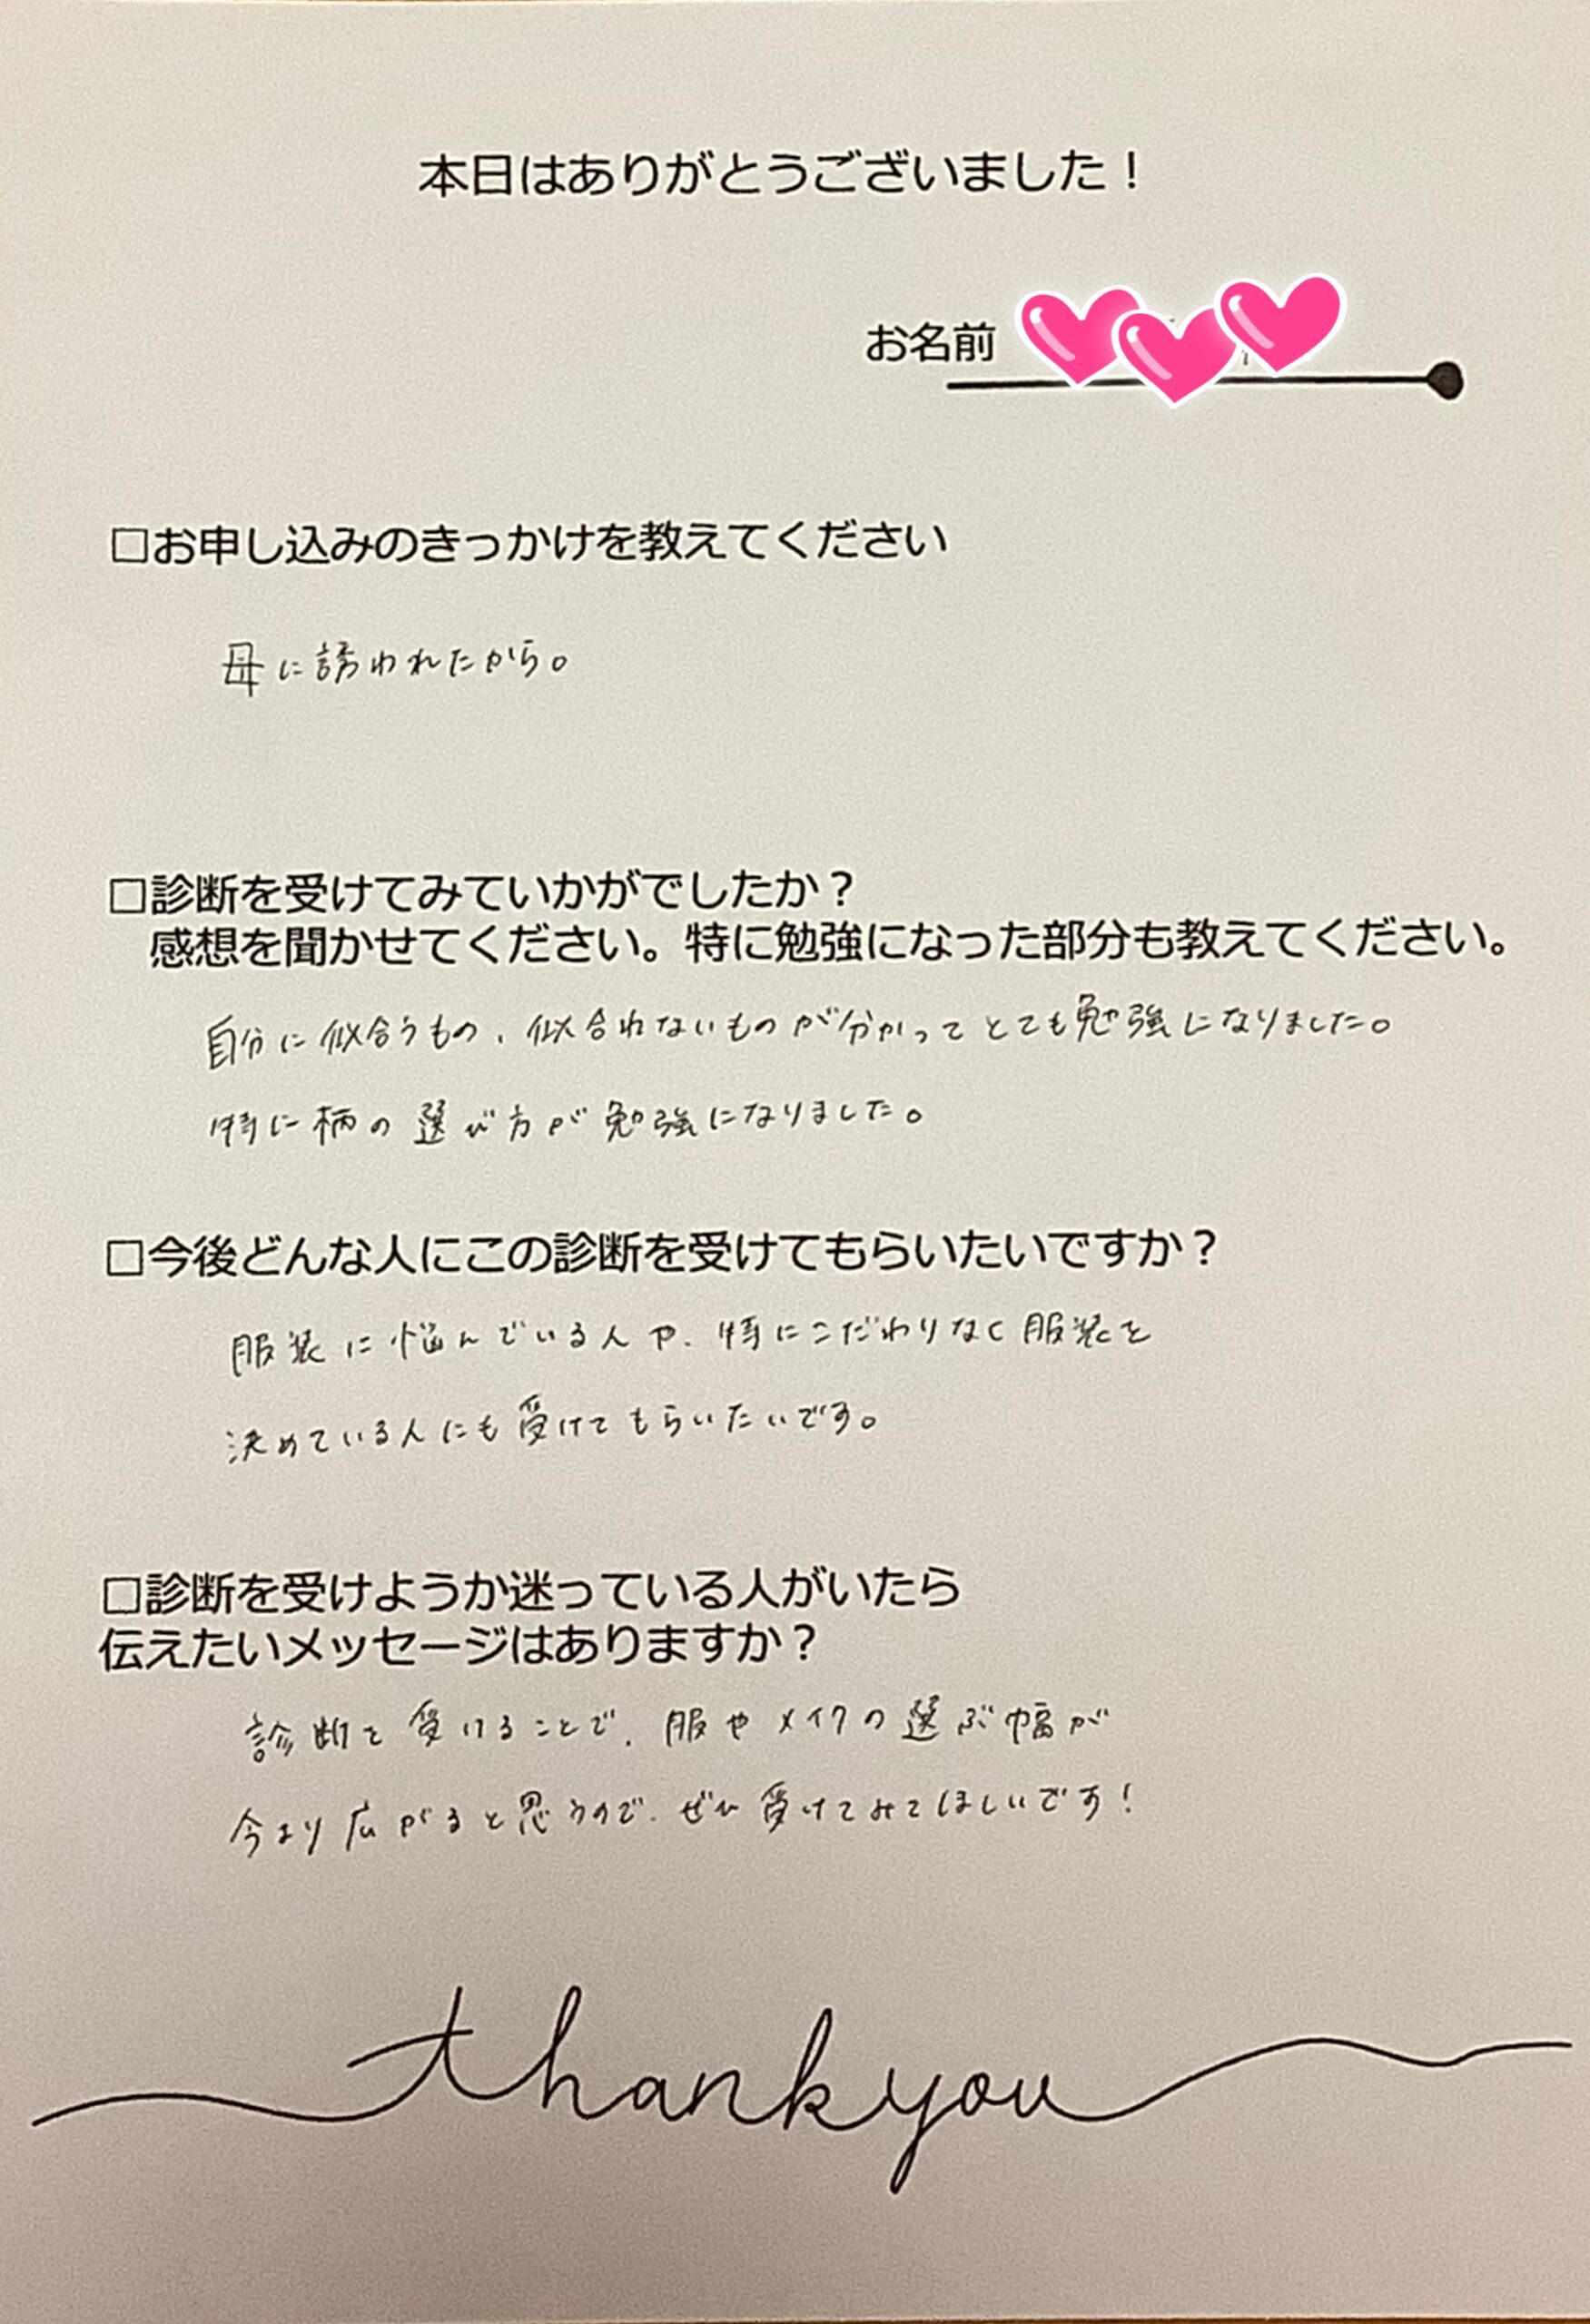 本日はありがとうございました！
お名前
□お申し込みのきっかけを教えてください
母に誘われたから。
□診断を受けてみていかがでしたか？
感想を聞かせてください。特に勉強になった部分も教えてください。
自分に似合うもの、似合わないものが分かってとても勉強になりました。
特に柄の選び方が勉強になりました。
□今後どんな人にこの診断を受けてもらいたいですか？
服装に悩んでいる人や、特にこだわりなく服装を
決めている人にも受けてもらいたいです。
□診断を受けようか迷っている人がいたら
伝えたいメッセージはありますか？
診断を受けることで、服やメイクの選ぶ幅が
今より広がると思うので、ぜひ受けてみてほしいです！
thank you